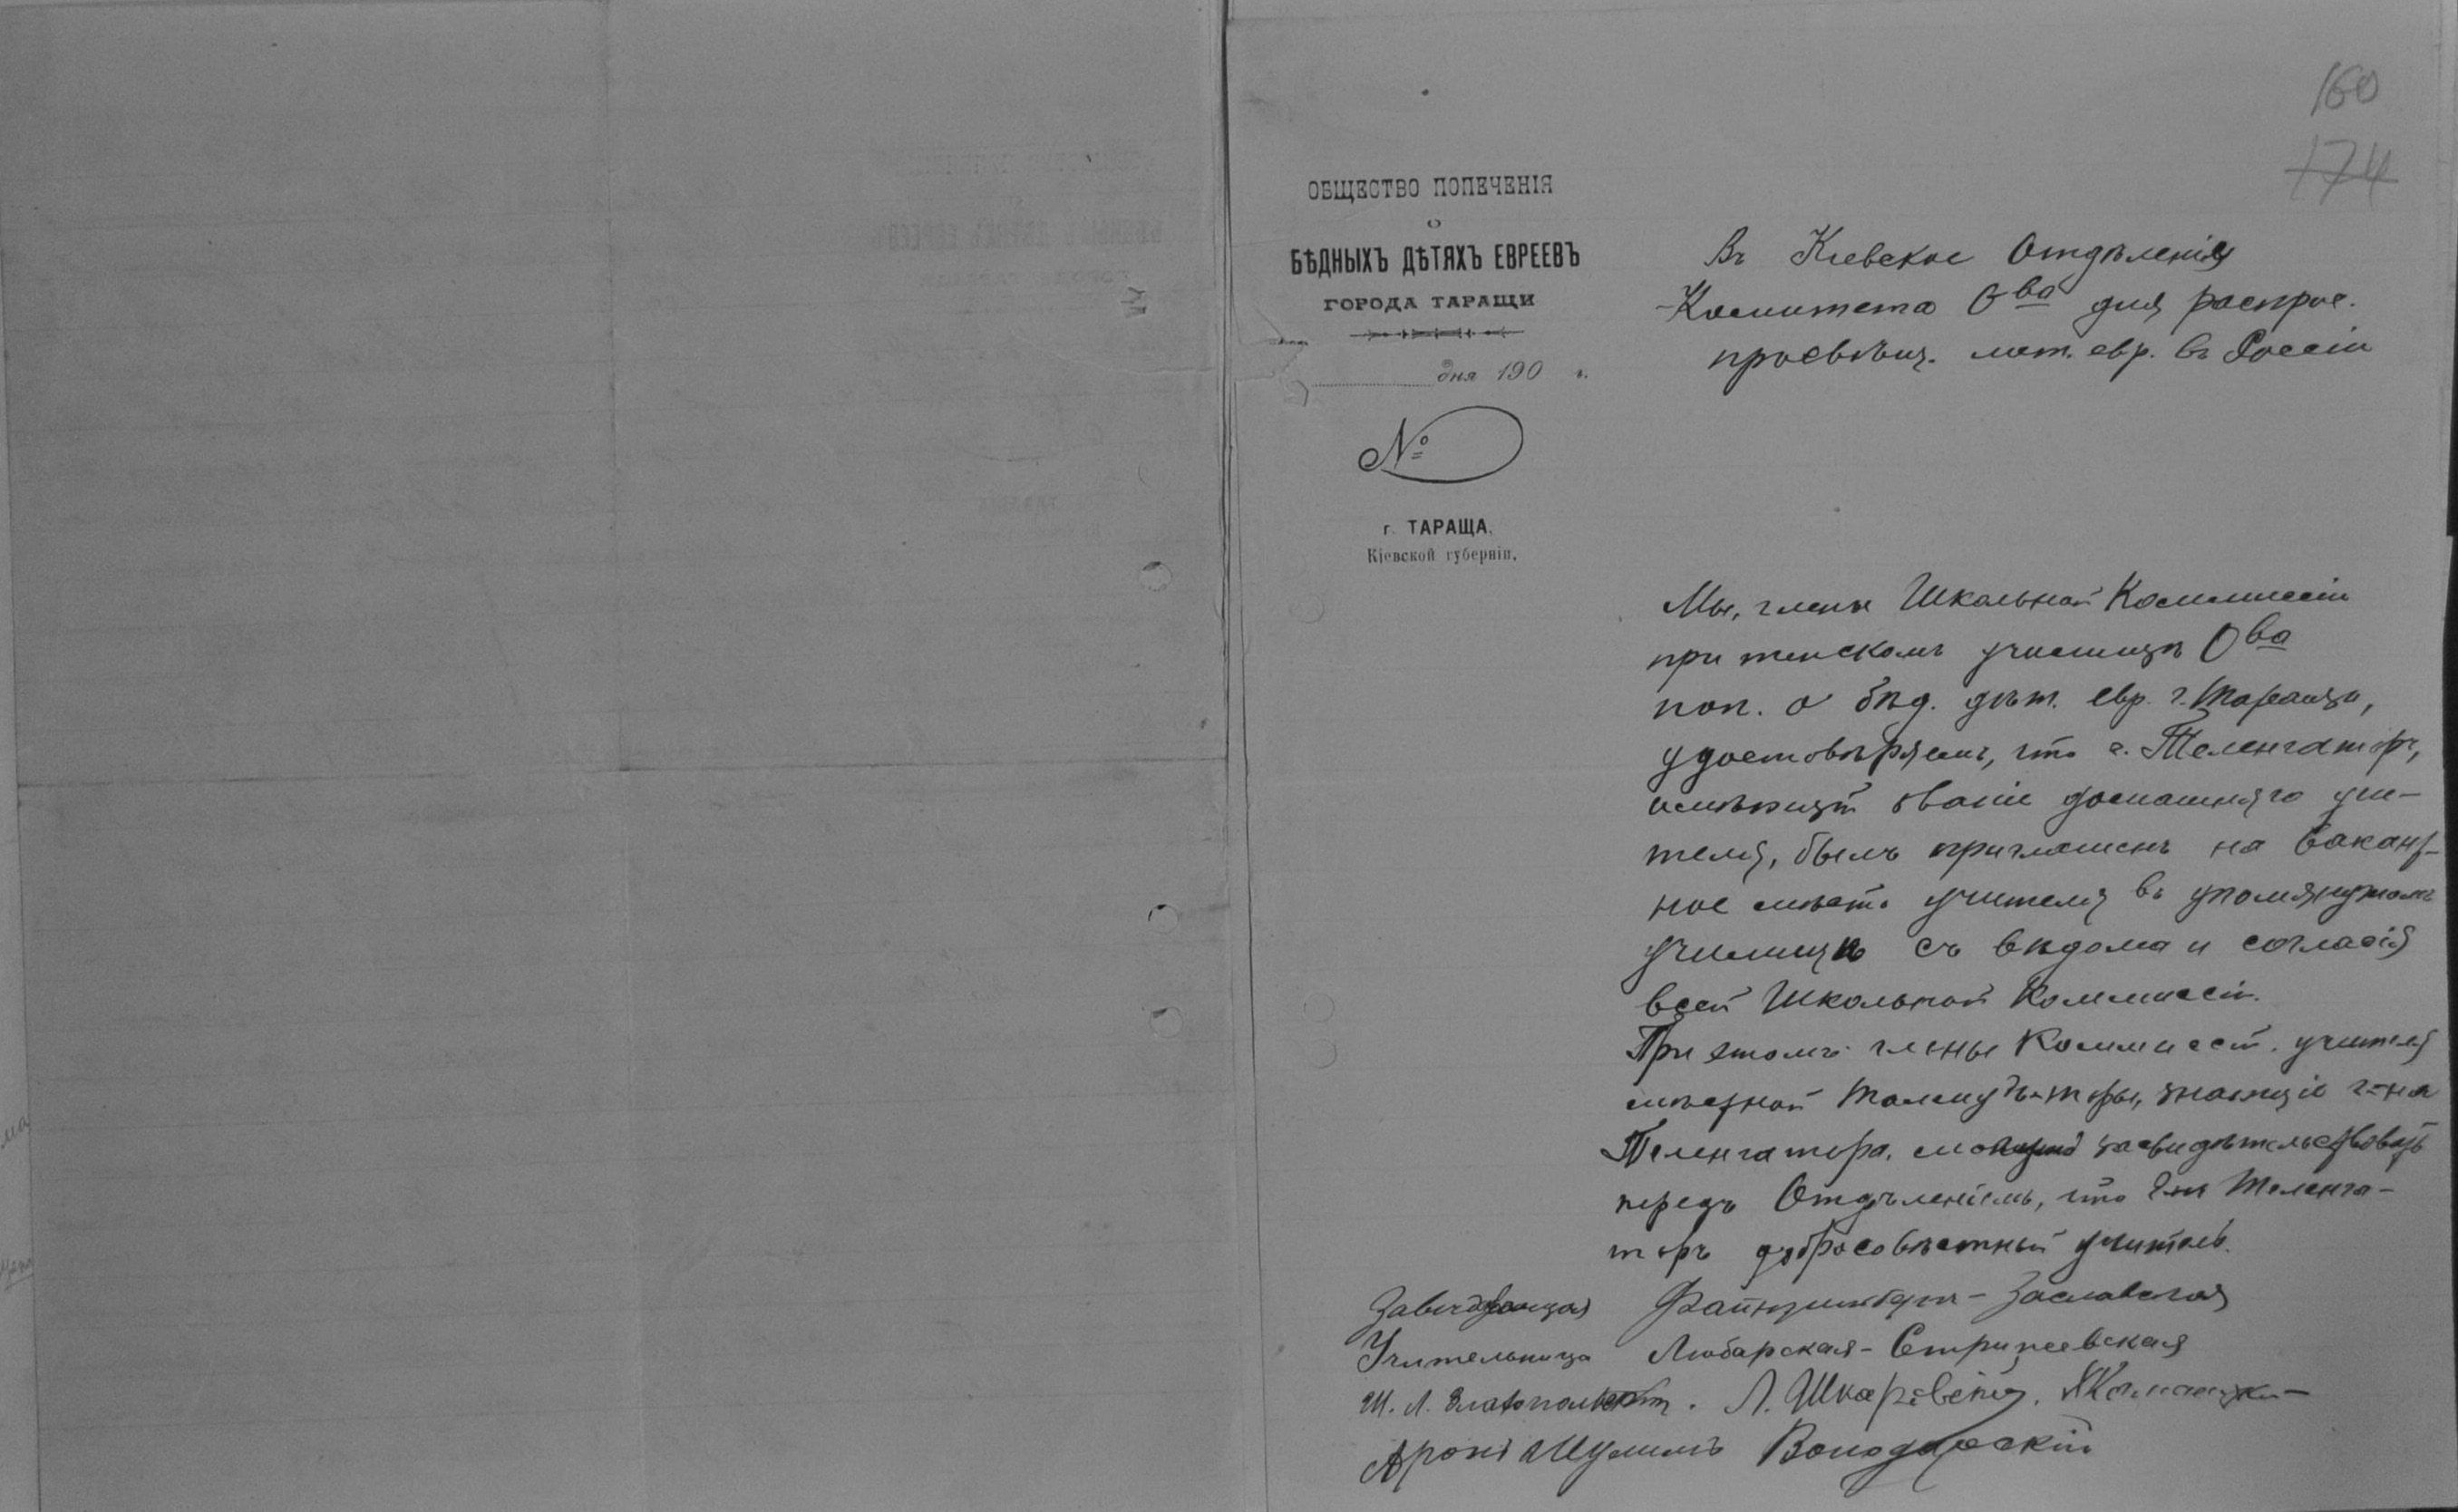 160
174
ОБЩЕСТВО ПОПЕЧЕНІЯ
О
БѢДНЫХЪ ДѢТЯХЪ ЕВРЕЕВЪ
ГОРОДА ТАРАЩИ
дня 190 г.
№
г. ТАРАЩА.
Кіевской губерніи.
Въ Кіевское Отдѣленія
Комитета О-ва для распрос.
просвѣщ. меж. евр. въ Россіи
Мы, члены Школьной Коммиссіи
при женскомъ училищѣ О-ва
поп. о бѣд. дѣт. евр. г. Таращи,
удостовѣряемъ, что г. Теленгаторъ,
имѣющій званіе домашняго учи-
теля, былъ приглашенъ на вакант-
ное мѣсто учителя въ упомянутомъ
училищѣ съ вѣдома и согласія
всей Школьной Коммиссіи.
При этомъ члены Коммиссіи, учителя
мѣстной Талмудъ-Торы, знающіе г-на
Теленгатора, могутъ засвидѣтельствовать
передъ Отдѣленіемъ, что г-нъ Теленга-
торъ добросовѣстный учитель.
Завѣдующая - Заславская
Учительница Любарская-
Ш. Л. Златопольскій. Л.
Аронъ Шулимъ Володарскій